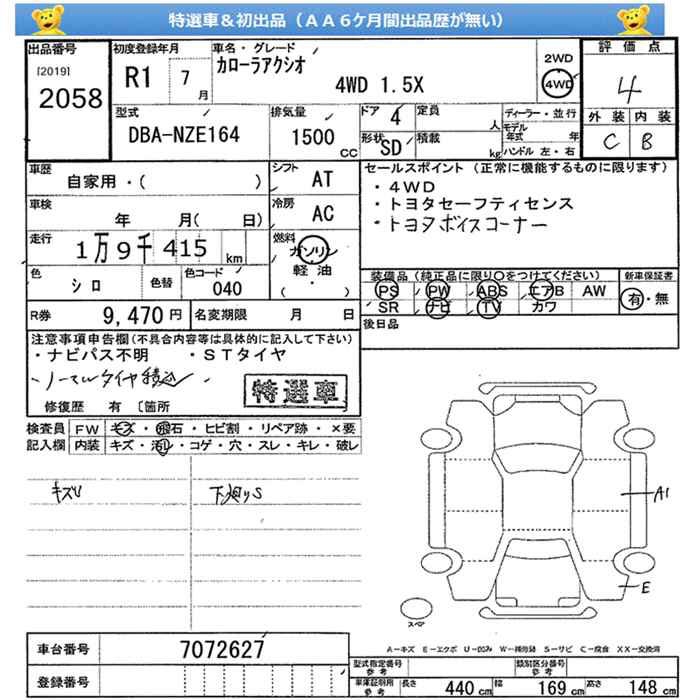 特選車＆初出品（ＡＡ６ケ月間出品歴が無い）
出品番号
[2019]
2058
初度登録年月
R1 7 月
車名・グレード
カローラアクシオ
4WD 1.5X
2WD
4WD
評価点
4
外装 内装
C B
型式
DBA-NZE164
排気量
1500 CC
ドア 4
定員 人
形状 SD
積載 kg
ディーラー・並行
モデル年式 年
ハンドル 左・右
車歴
自家用・( )
シフト AT
車検
年 月( 日)
冷房 AC
走行
1万9千415 km
燃料
ガソリン
軽油
( ・ )
色 シロ
色替
色コード 040
R券 9,470円
名変期限 月 日
セールスポイント（正常に機能するものに限ります）
・4WD
・トヨタセーフティセンス
・トヨタボイスコーナー
装備品（純正品に限り○をつけてください）
新車保証書
PS PW ABS エアB AW
SR ナビ TV カワ
有・無
後日品
注意事項申告欄(不具合内容等は具体的に記入して下さい)
・ナビパス不明 ・STタイヤ
・ノーマルタイヤ積込
特選車
修復歴 有 〔箇所
検査員記入欄
FW キズ・飛石・ヒビ割・リペア跡・×要
内装 キズ・汚レ・コゲ・穴・スレ・キレ・破レ
キズU
下廻りS
A1
E
スペア
車台番号 7072627
登録番号
A－キズ E－エクボ U－凹み W－補修跡 S－サビ C－腐食 XX－交換済
型式指定番号 参考
類別区分番号 参考
車庫証明用 参考
長さ 440 cm 幅 169 cm 高さ 148 cm